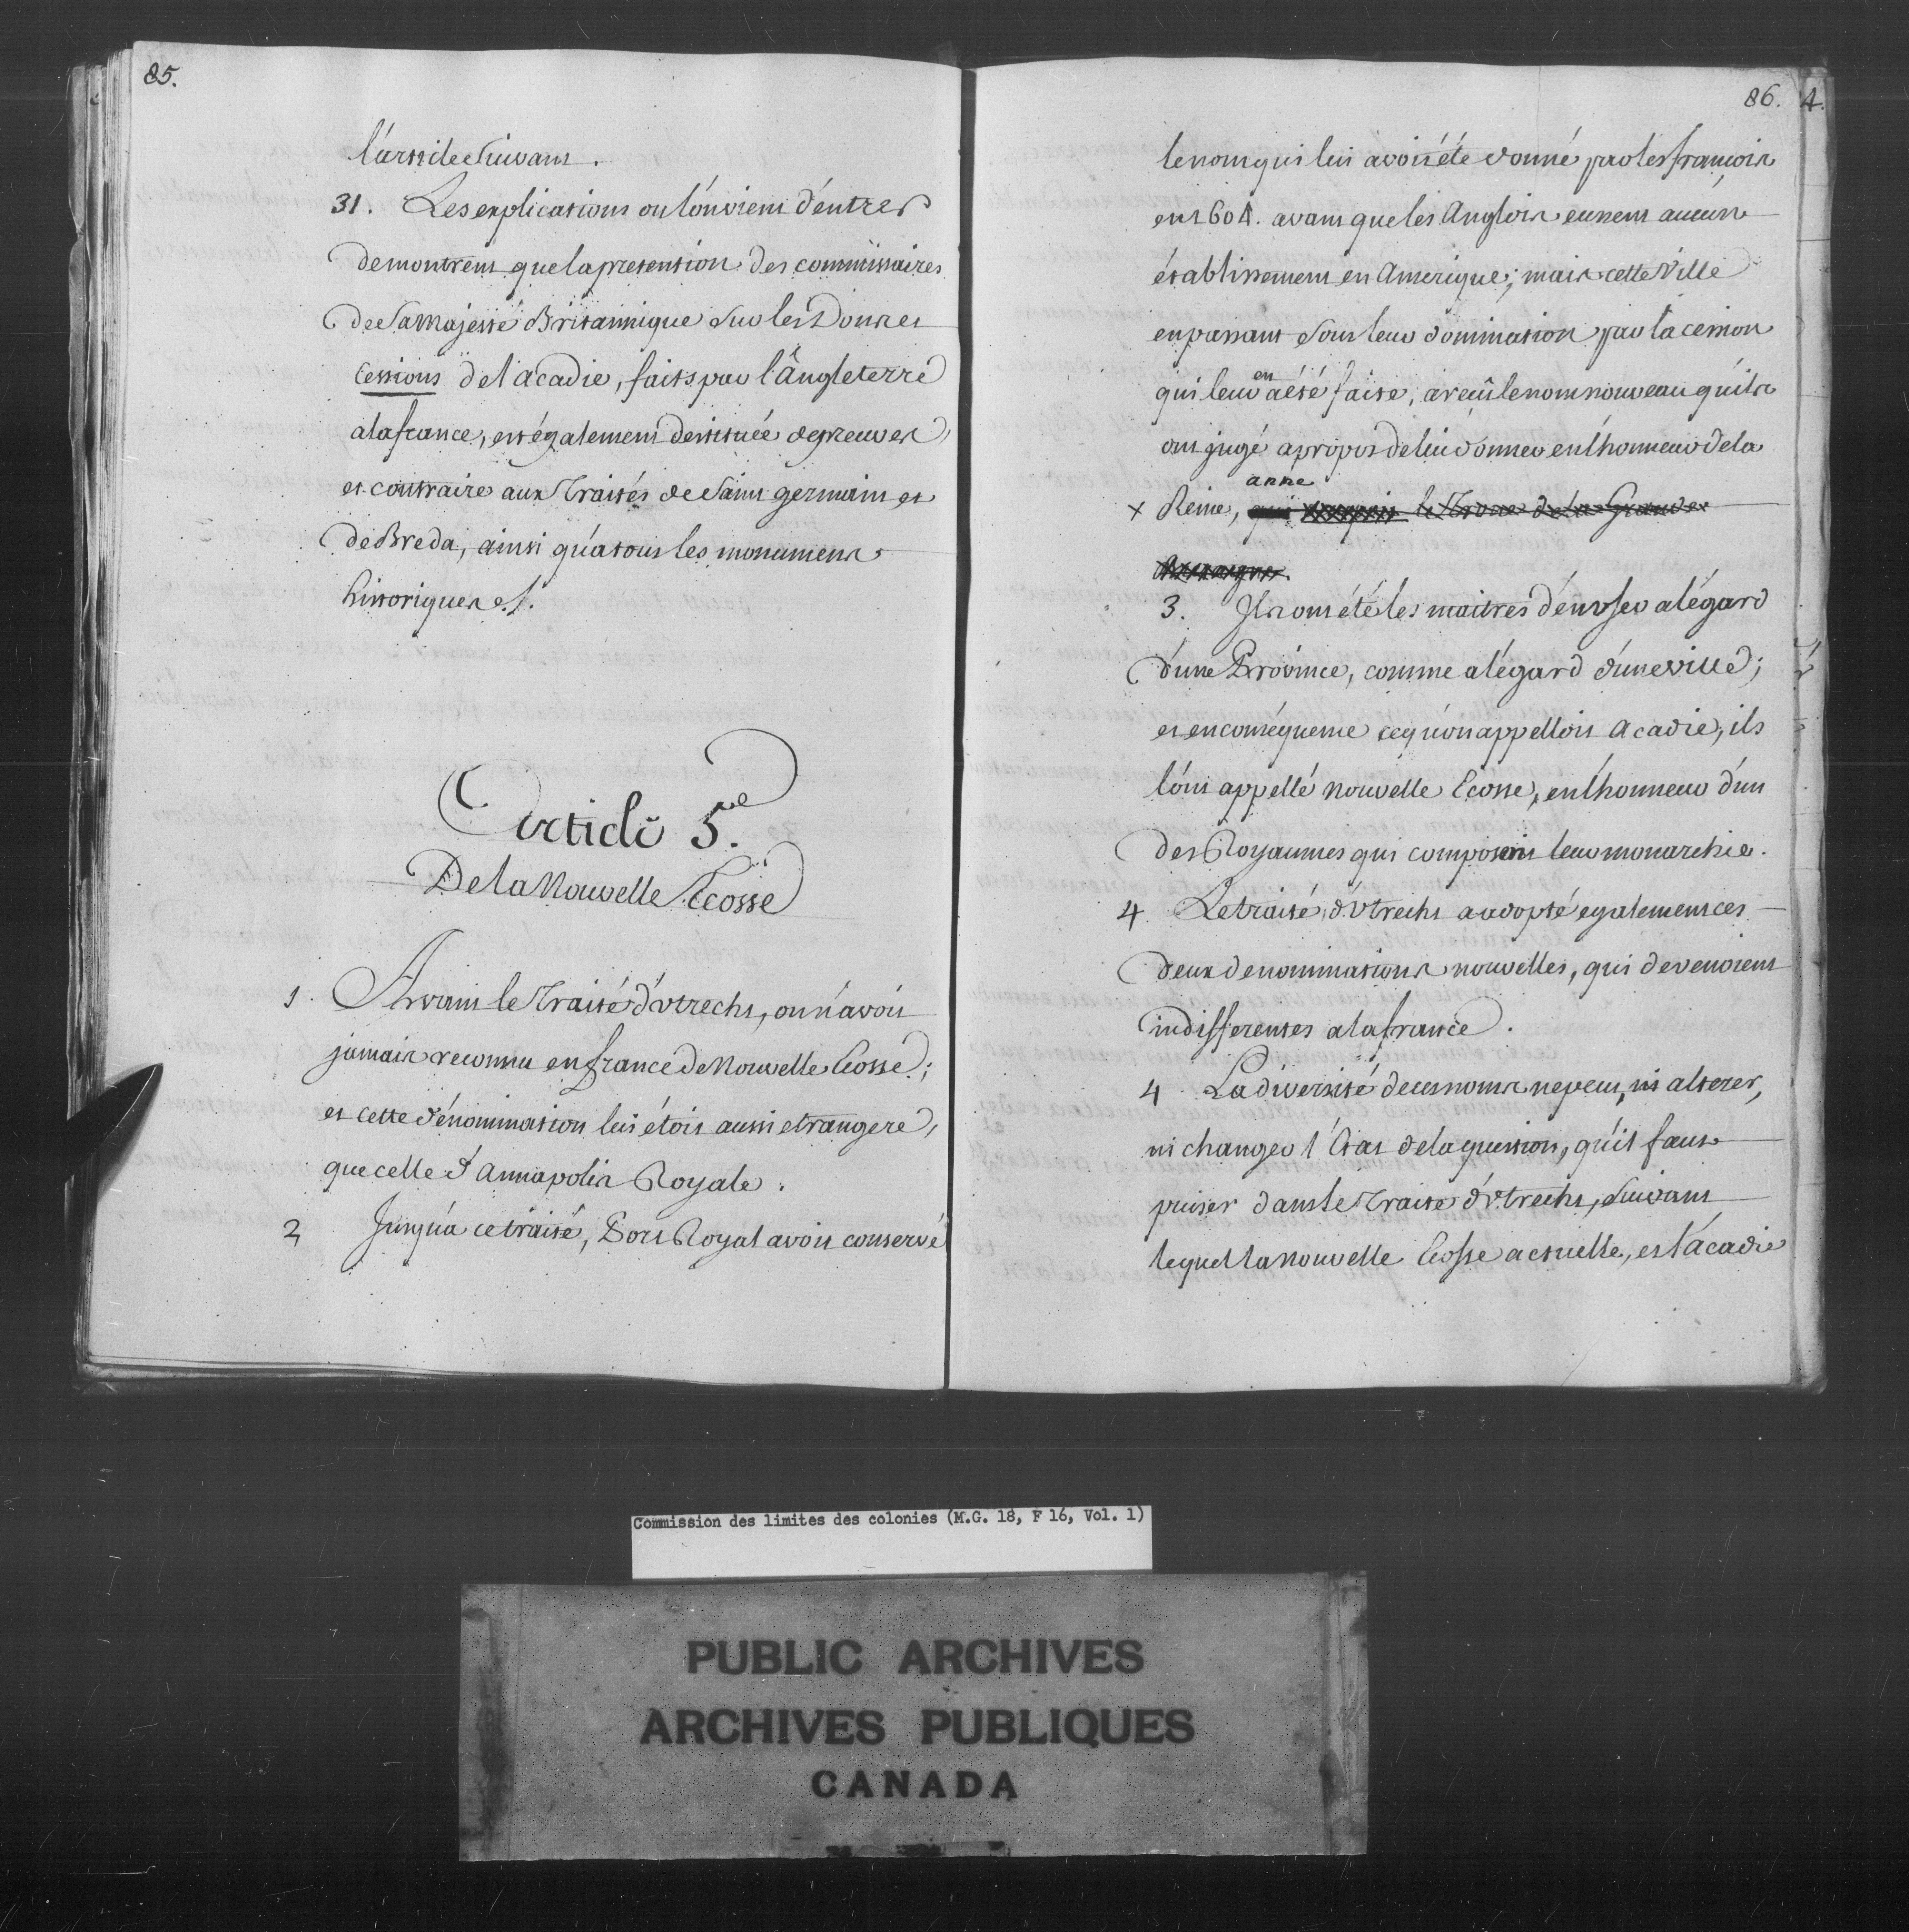 85.
l'article Suivant.
31. Les explications ou l'on vient d'entrer
demontrent que la pretension des commissaires
de Sa Majesté Britannique Sur les Douses
Cessions de l'acadie, faits par l'Angleterre
a la france, est également destituée de preuves
et contraire aux Traités de Saint germain et
de Breda, ainsi qu'a tous les monumens
historiques ./.
Article 5.e
De la Nouvelle Ecosse
1. Avant le Traité d'Vtrecht, on n'avoit
jamais reconnu en france de Nouvelle Ecosse;
et cette dénomination lui étoit aussi etrangere,
que celle d'Annapolis Royale.
2 Jusqu'a ce traité, Port Royal avoit conservé
86. 4.
le nom qui lui avoit été donné par les francois
en 1604. avant que les Anglois eussent aucun
établissement en Amerique; mais cette Ville
en passant Sous leur domination par la cession
qui leur en a été faite, a recû le nom nouveau qu'ils
ont jugé apropos de lui donner en l'honneur de la
anne
x Reine, qui occupoit le Trone de la Grande
Bretagne.
3. Ils ont été les maitres d'en vser a l'égard
d'une Province, comme a l'égard d'une ville;
et en conséquence ce qu'on appelloit Acadie, ils
l'ont appellé Nouvelle Ecosse, en l'honneur d'un
des Royaumes qui composent leur monarchie.
4 Le traité d'Vtrecht a adopté egalement ces
deux denominations nouvelles, qui devenoient
indifferentes a la france.
4 La diversité de ces noms ne peut, ni alterer,
ni changer l'Etat de la question, qu'il faut
puiser dans le Traité d'Vtrecht, Suivant
lequel la Nouvelle Ecosse actuelle, est l'acadie
Commission des limites des colonies (M.G. 18, F 16, Vol. 1)
PUBLIC ARCHIVES
ARCHIVES PUBLIQUES
CANADA